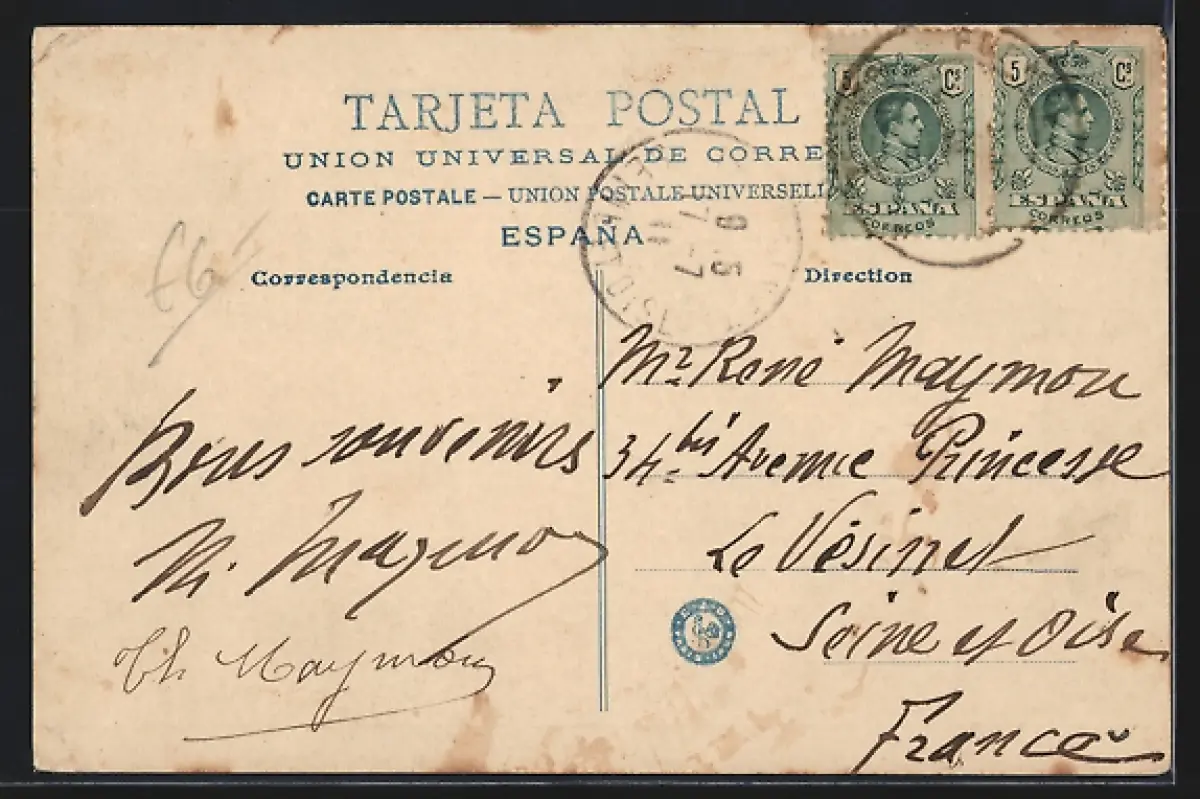 TARJETA POSTAL
UNION UNIVERSAL DE CORRE
CARTE POSTALE — UNION POSTALE UNIVERSELL
ESPAÑA
Correspondencia
Direction
5 Cs
ESPAÑA
CORREOS
5 Cs
ESPAÑA
CORREOS
£6
Bons souvenirs
M. Maymon
Th Maymon
Mr René Maymon
34 bis Avenue Princesse
Le Vésinet
Seine et Oise
France